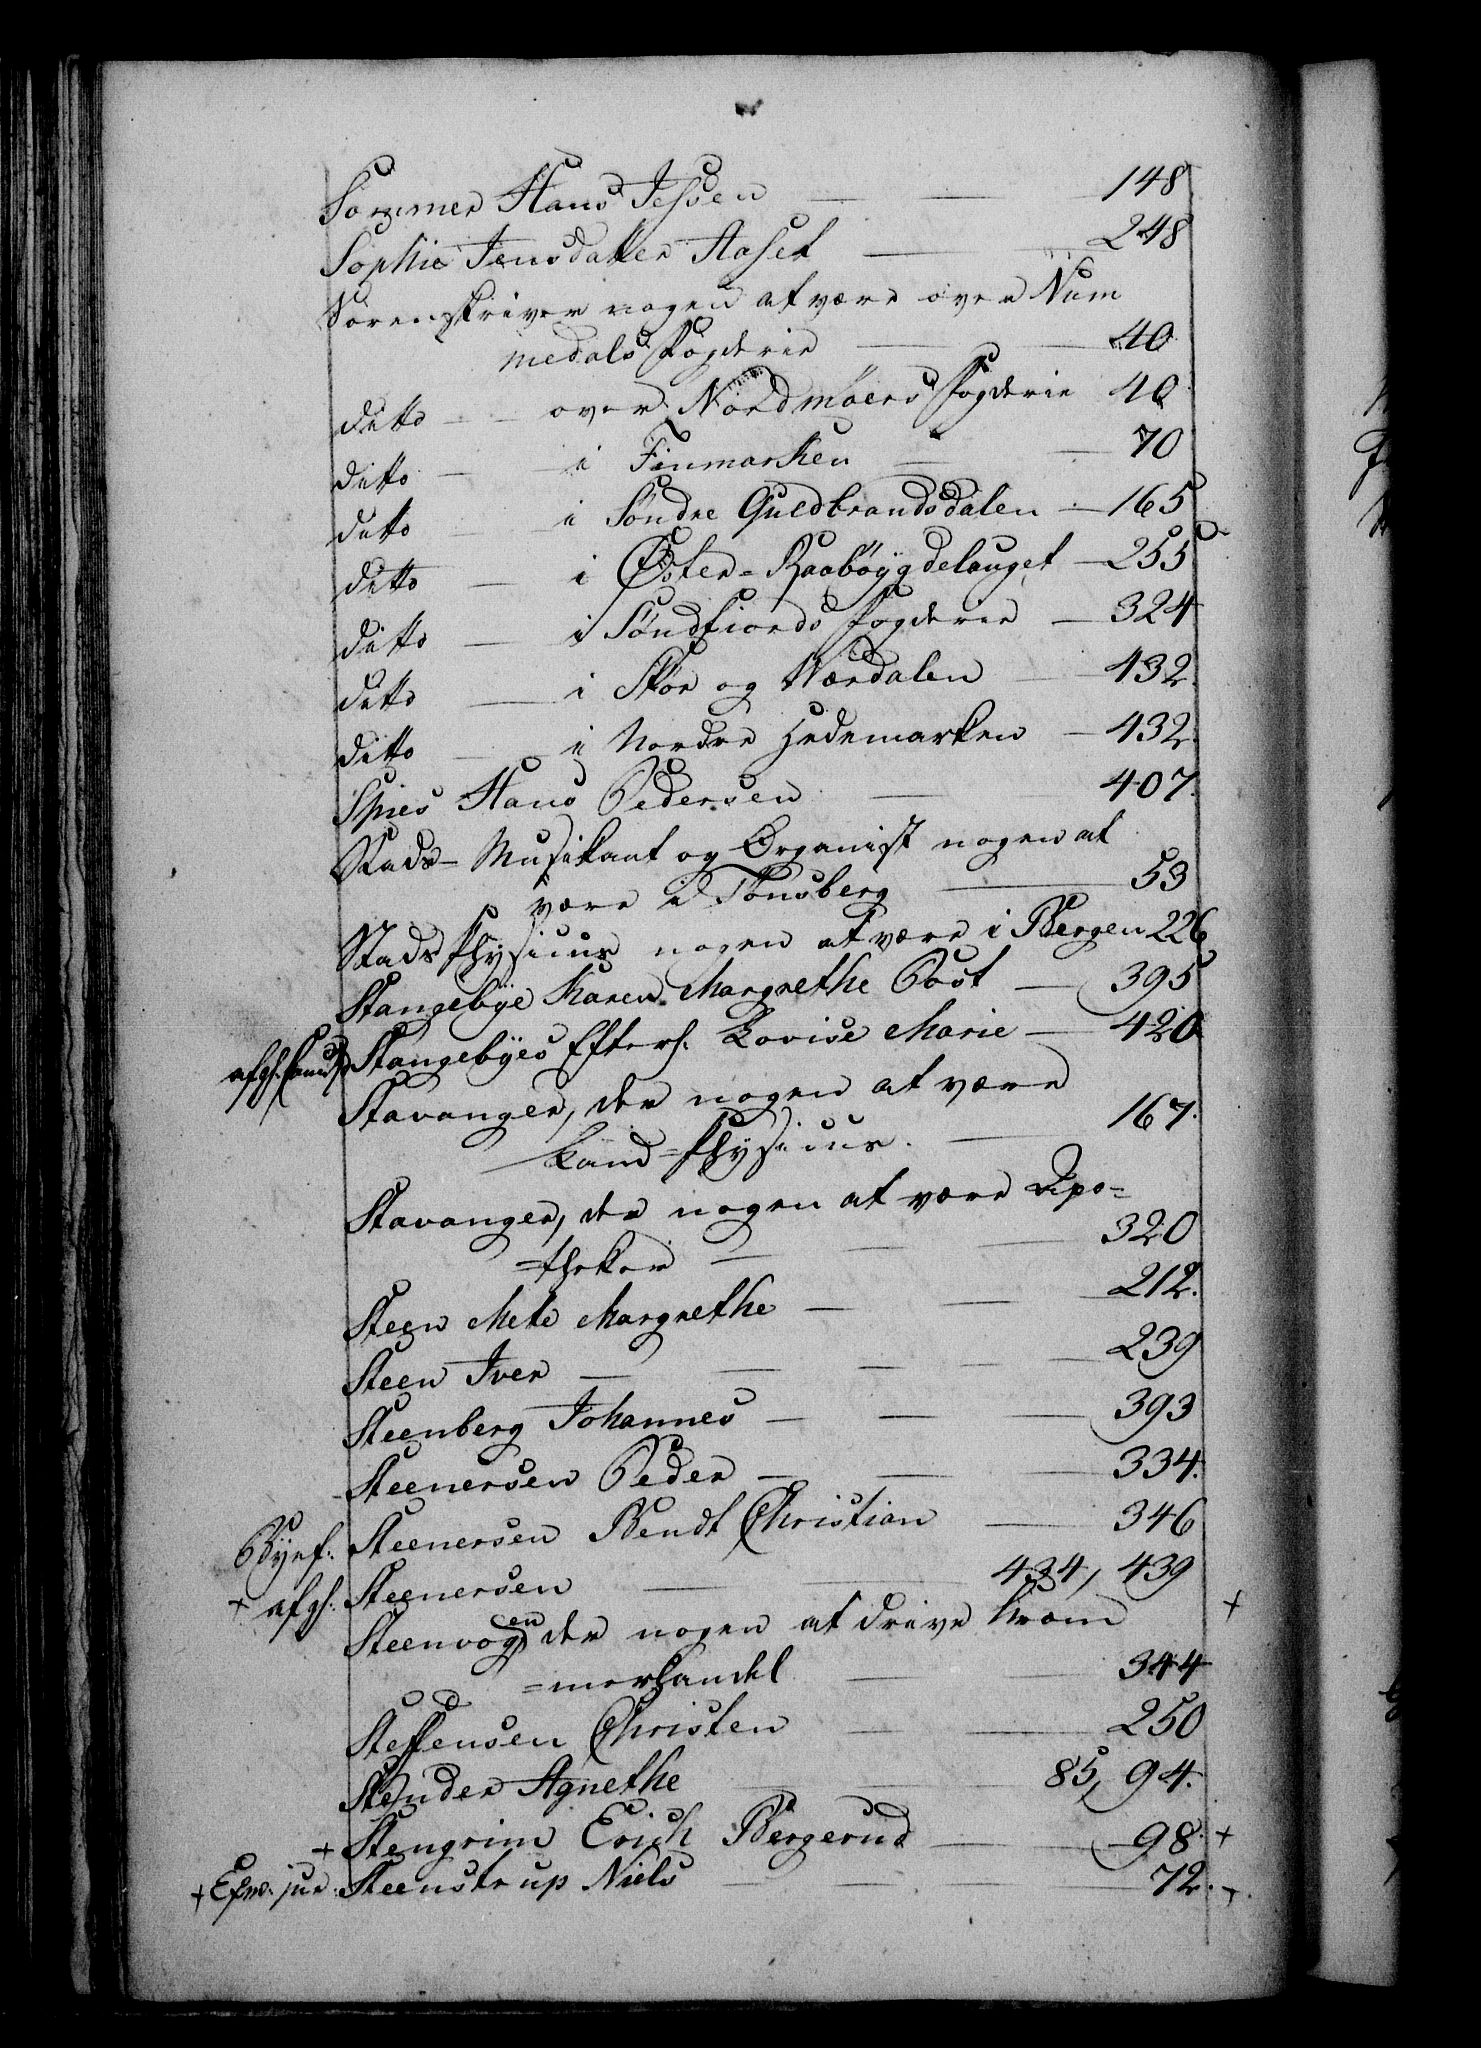 Sommer Hans Jessen — — 148
Sophie Jensdatter Aaset — — 248
Sorenskriver nogen at være over Num
medals fogderie — — 40
ditto — over Nordmoers fogderie 40
ditto — i Finmarken — — 70
ditto — i Søndre Guldbrandsdalen — 165
ditto — i Øster-Raabøygdelauget — 255
ditto — i Søndfiords fogderie — 324
ditto — i Stør og Værdalen — 432.
ditto — i Nordre Hedemarken — 432.
Spies Hans Pedersen — 407.
Stads-Musikant og Organist nogen at
være i Tønsberg — 53
Stads Physicus nogen at være i Bergen 226
Stangebye Karen Margrethe Post — 395
Stangebyes Efterl: Lovise Marie — 420
Stavanger, der nogen at være
Land-Physicus. — 167.
Stavanger, der nogen at være Apo=
=theker — — — 320
Steen Mete Margrethe — — — 212.
Steen Iver — — — — 239
Steenberg Johannes — — — 393
Steenersen Peder — — — 334.
Bynf: Steenersen Bendt Christian — 346
+ afgl: Steenersen — — 434, 439 +
Steenvogen der nogen at drive Kram
=merhandel — — 344
Steffensen Christen — — 250
Stender Agnethe — — 85, 94.
+ Stengrim Erich Bergerud — — 98. +
+ Exam. jur: Steenstrup Niels — — — 72. +